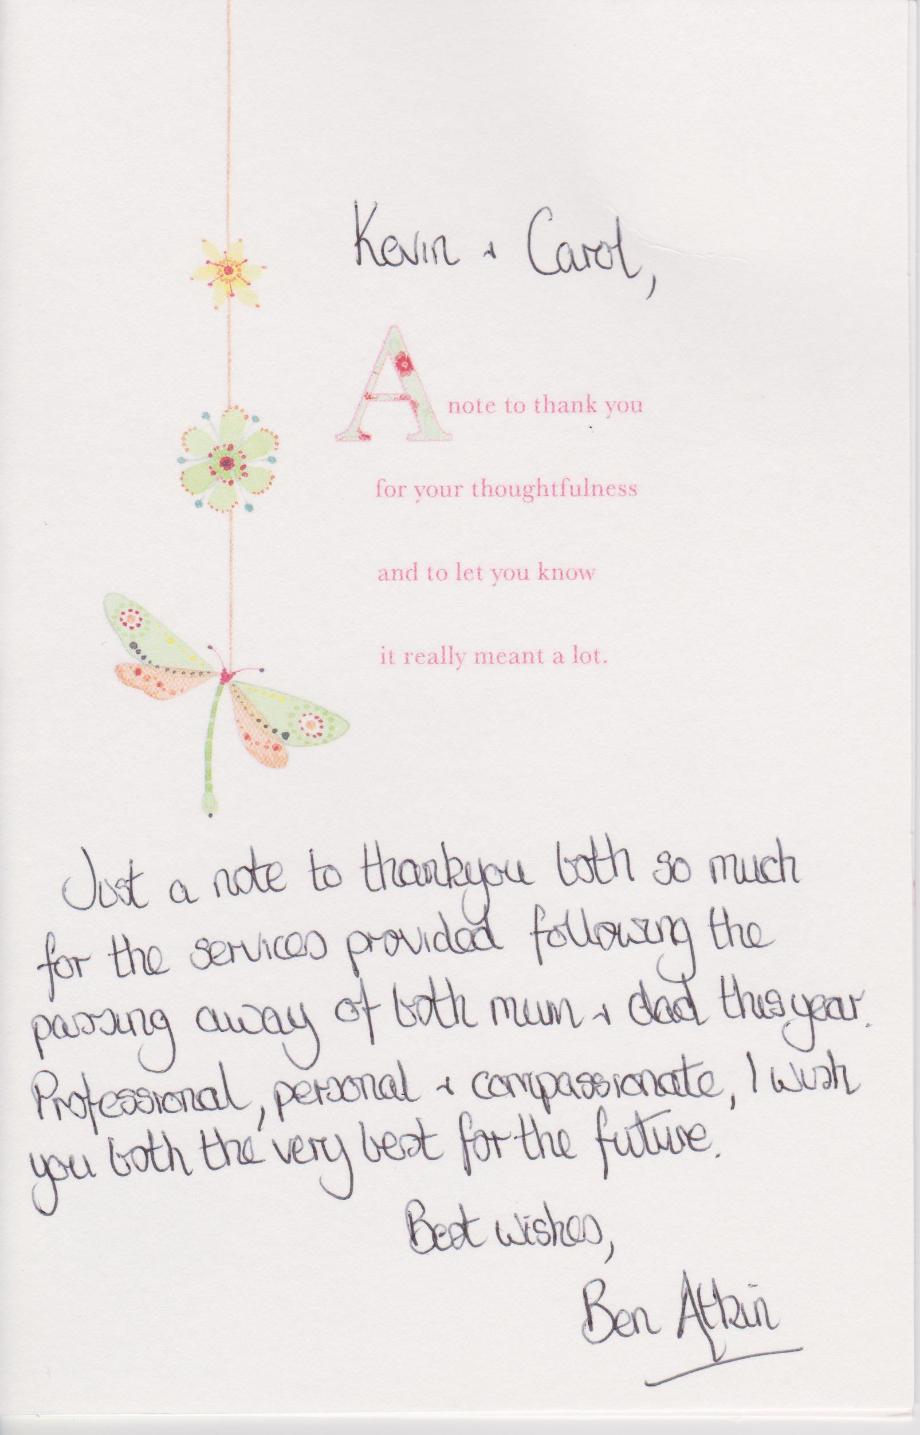 Kevin + Carol,
A note to thank you
for your thoughtfulness
and to let you know
it really meant a lot.
Just a note to thankyou both so much
for the services provided following the
passing away of both mum + dad this year.
Professional, personal + compassionate, I wish
you both the very best for the future.
Best wishes,
Ben Atkin